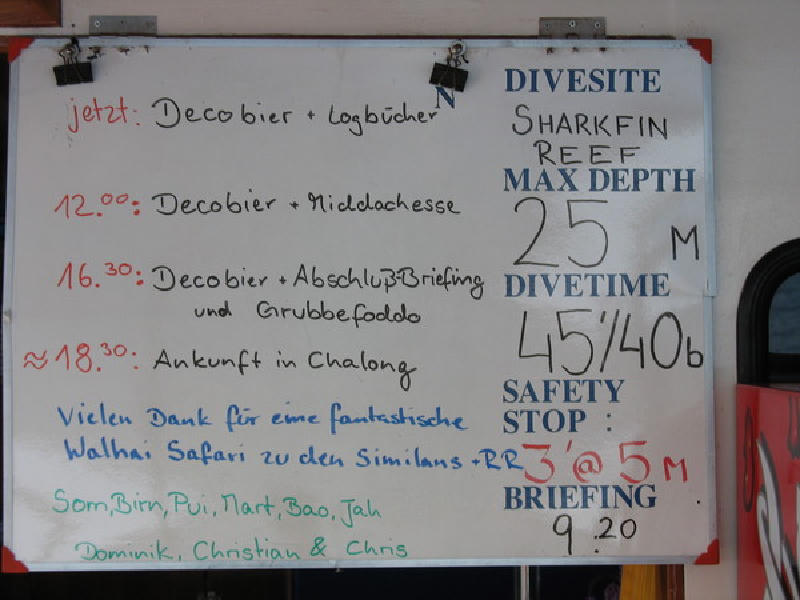 jetzt: Decobier + Logbücher
N
12.00: Decobier + Middachesse
16.30: Decobier + Abschluß-Briefing
und Grubbefoddo
≈18.30: Ankunft in Chalong
Vielen Dank für eine fantastische
Walhai Safari zu den Similans + RR
Som, Birn, Pui, Mart, Bao, Jah
Dominik, Christian & Chris
DIVESITE
SHARKFIN
REEF
MAX DEPTH
25 M
DIVETIME
45'/40b
SAFETY
STOP :
3' @ 5 M
BRIEFING
9.20